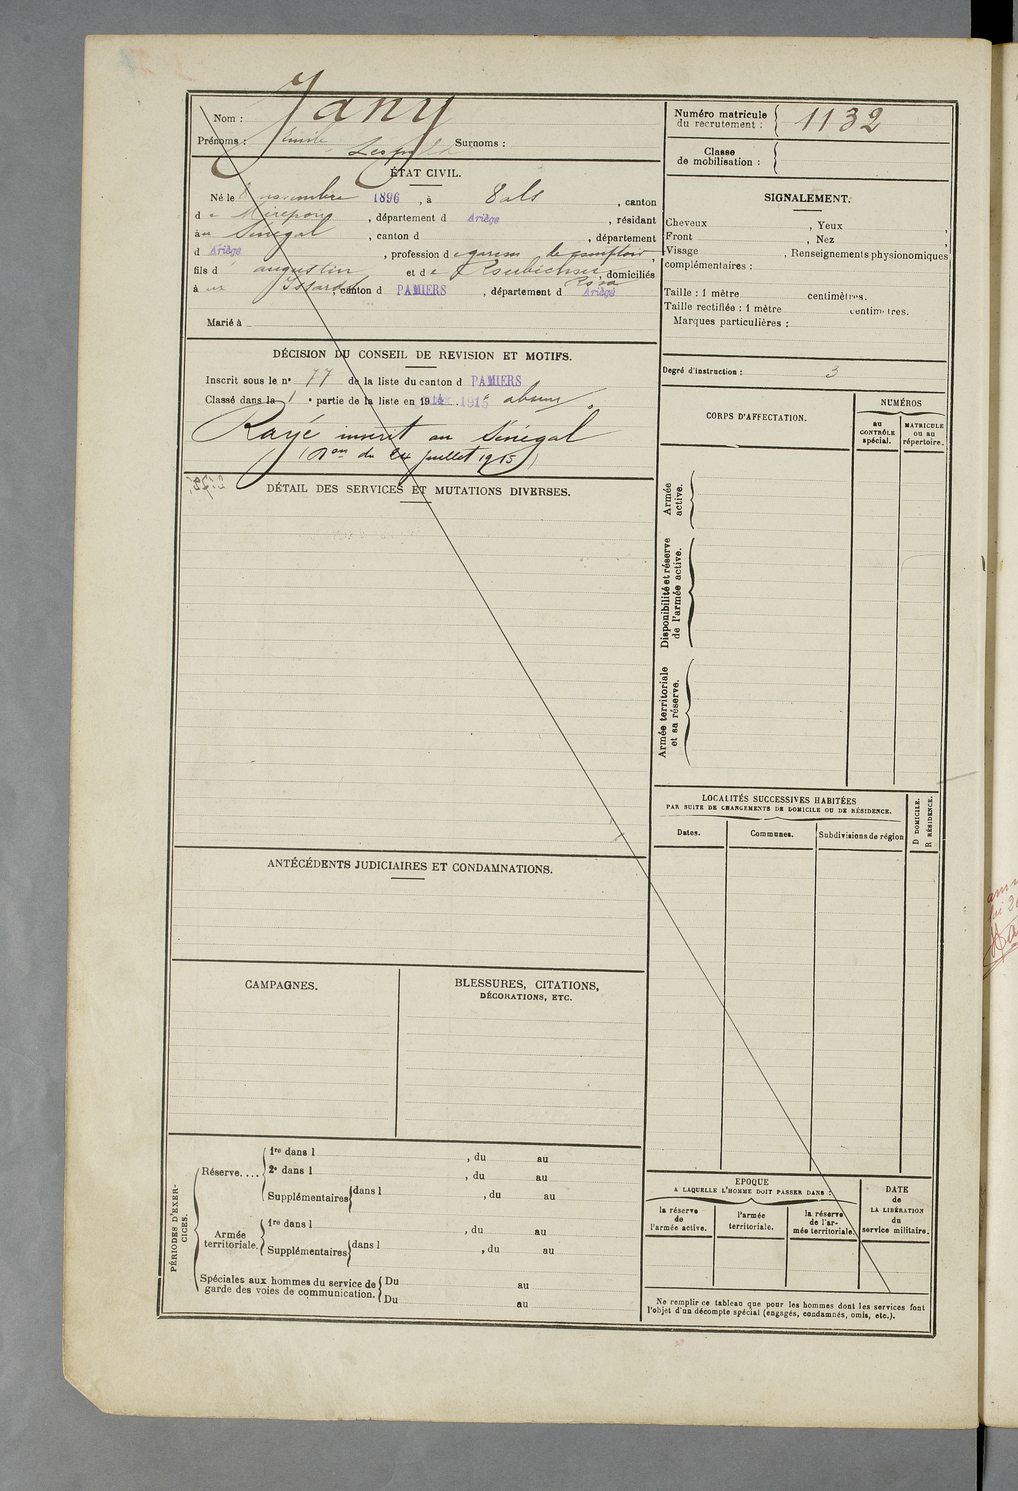 Nom : Jany
Prénoms : Emile Léopold Surnoms :
Numéro matricule du recrutement : 1132
Classe de mobilisation :
ÉTAT CIVIL.
Né le 8 novembre 1896, à , canton
d e Mirepoix, département d Ariège, résidant
au Sénégal, canton d , département
d Ariège, profession d e garçon de comptoir,
fils d' augustin et d e Rosa domiciliés
à , canton d PAMIERS, département d Ariège
Marié à
DÉCISION DU CONSEIL DE REVISION ET MOTIFS.
Inscrit sous le n° 77 de la liste du canton d PAMIERS
Classé dans la 1° partie de la liste en 19 1915 absent
Rayé inscrit au Sénégal
( du 24 juillet 1915)
DÉTAIL DES SERVICES ET MUTATIONS DIVERSES.
ANTÉCÉDENTS JUDICIAIRES ET CONDAMNATIONS.
CAMPAGNES.
BLESSURES, CITATIONS,
DÉCORATIONS, ETC.
PÉRIODES D'EXERCICES.
Réserve....
1re dans l , du au
2e dans l , du au
Supplémentaires dans l , du au
Armée territoriale.
1re dans l , du au
Supplémentaires dans l , du au
Spéciales aux hommes du service de
garde des voies de communication.
Du au
Du au
SIGNALEMENT.
Cheveux , Yeux ,
Front , Nez ,
Visage , Renseignements physionomiques
complémentaires :
Taille : 1 mètre centimètres.
Taille rectifiée : 1 mètre centimètres.
Marques particulières :
Degré d'instruction : 3
CORPS D'AFFECTATION.
NUMÉROS
au CONTRÔLE spécial.
MATRICULE ou au répertoire.
Armée active.
Disponibilité et réserve de l'armée active.
Armée territoriale et sa réserve.
LOCALITÉS SUCCESSIVES HABITÉES
PAR SUITE DE CHANGEMENTS DE DOMICILE OU DE RÉSIDENCE.
Dates.
Communes.
Subdivisions de région
D DOMICILE.
R RÉSIDENCE.
EPOQUE
A LAQUELLE L'HOMME DOIT PASSER DANS :
la réserve de l'armée active.
l'armée territoriale.
la réserve de l'armée territoriale.
DATE
de
LA LIBÉRATION
du
service militaire.
Ne remplir ce tableau que pour les hommes dont les services font
l'objet d'un décompte spécial (engagés, condamnés, omis, etc.).